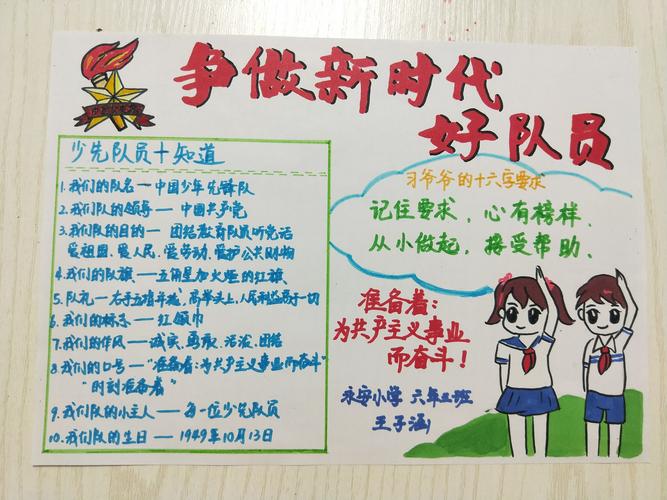 争做新时代
好队员
少先队员十知道
1.我们的队名—中国少年先锋队
2.我们队的领导—中国共产党
3.我们队的目的—团结教育队员听党话
爱祖国、爱人民、爱劳动、爱护公共财物
4.我们的队旗—五角星加火炬的红旗、
5.队礼—右手五指并拢,高举头上,人民利益高于一切
6.我们的标志—红领巾
7.我们的作风—诚实、勇敢、活泼、团结
8.我们的口号—"准备着:为共产主义事业而奋斗"
"时刻准备着"
9.我们队的小主人—每一位少先队员
10.我们队的生日—1949年10月13日
习爷爷的十六字要求
记住要求,心有榜样,
从小做起,接受帮助、
准备着:
为共产主义事业
而奋斗!
永安小学 六年二班
王子涵